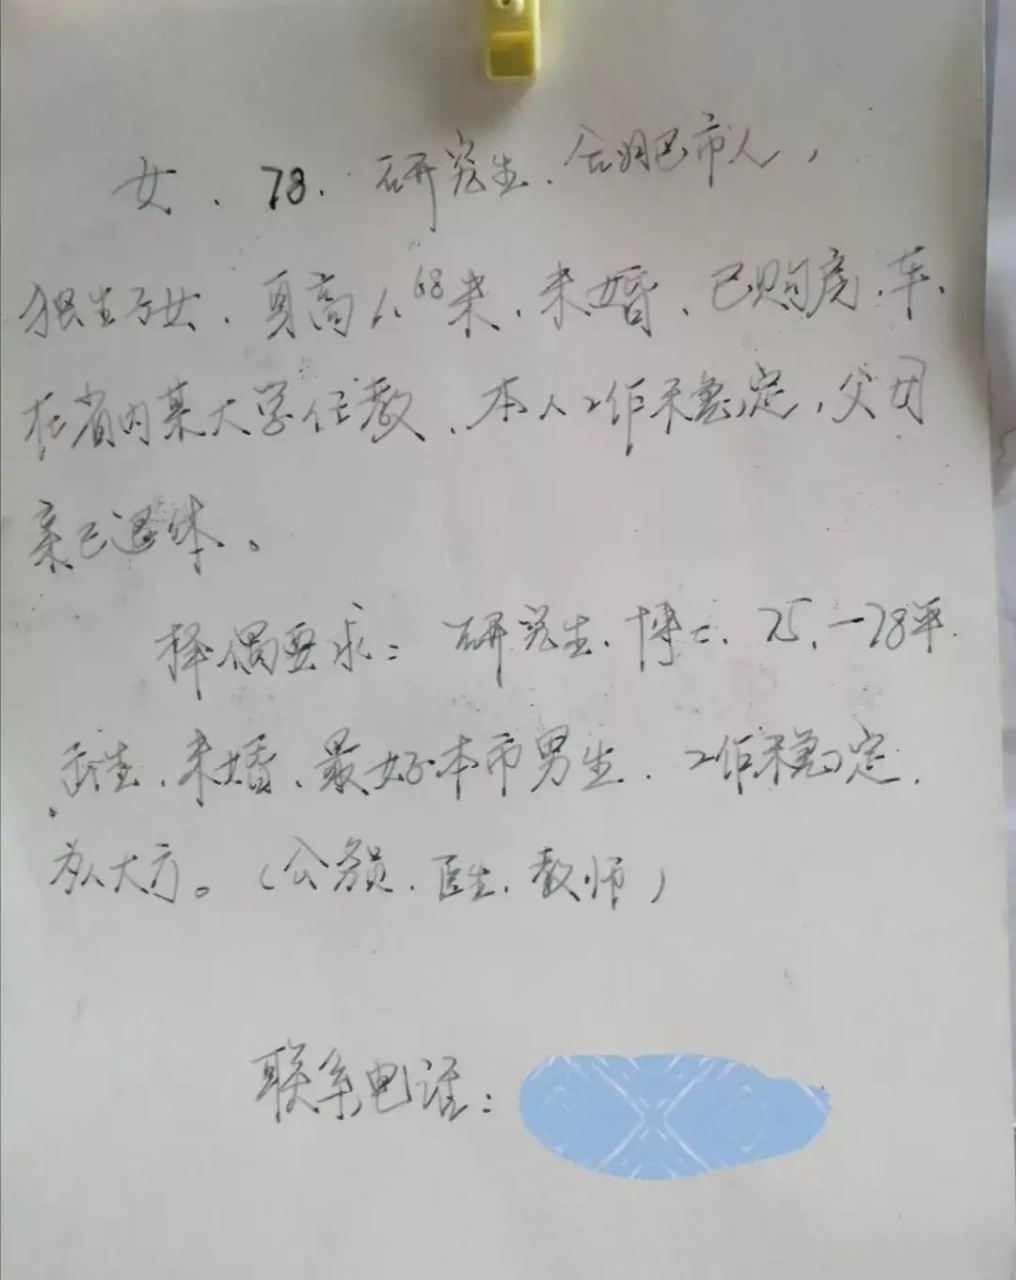 女、78、研究生、合肥市人，
独生子女、身高1.68米、未婚、已购房、车、
在省内某大学任教、本人工作稳定，父母
亲已退休。
择偶要求：研究生、博士、75、一78年
出生、未婚、最好本市男生、工作稳定、
为人大方。（公务员、医生、教师）
联系电话：